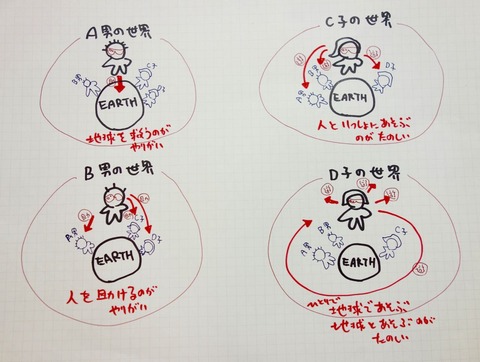 A男の世界
B男
C子
EARTH
地球を救うのが
やりがい
C子の世界
B男
A男
D子
EARTH
人といっしょにあそぶ
のが たのしい
B男の世界
A男
C子
EARTH
人を助けるのが
やりがい
D子の世界
B男
A男
C子
EARTH
ひとりで
地球であそぶ
地球とあそぶのが
たのしい